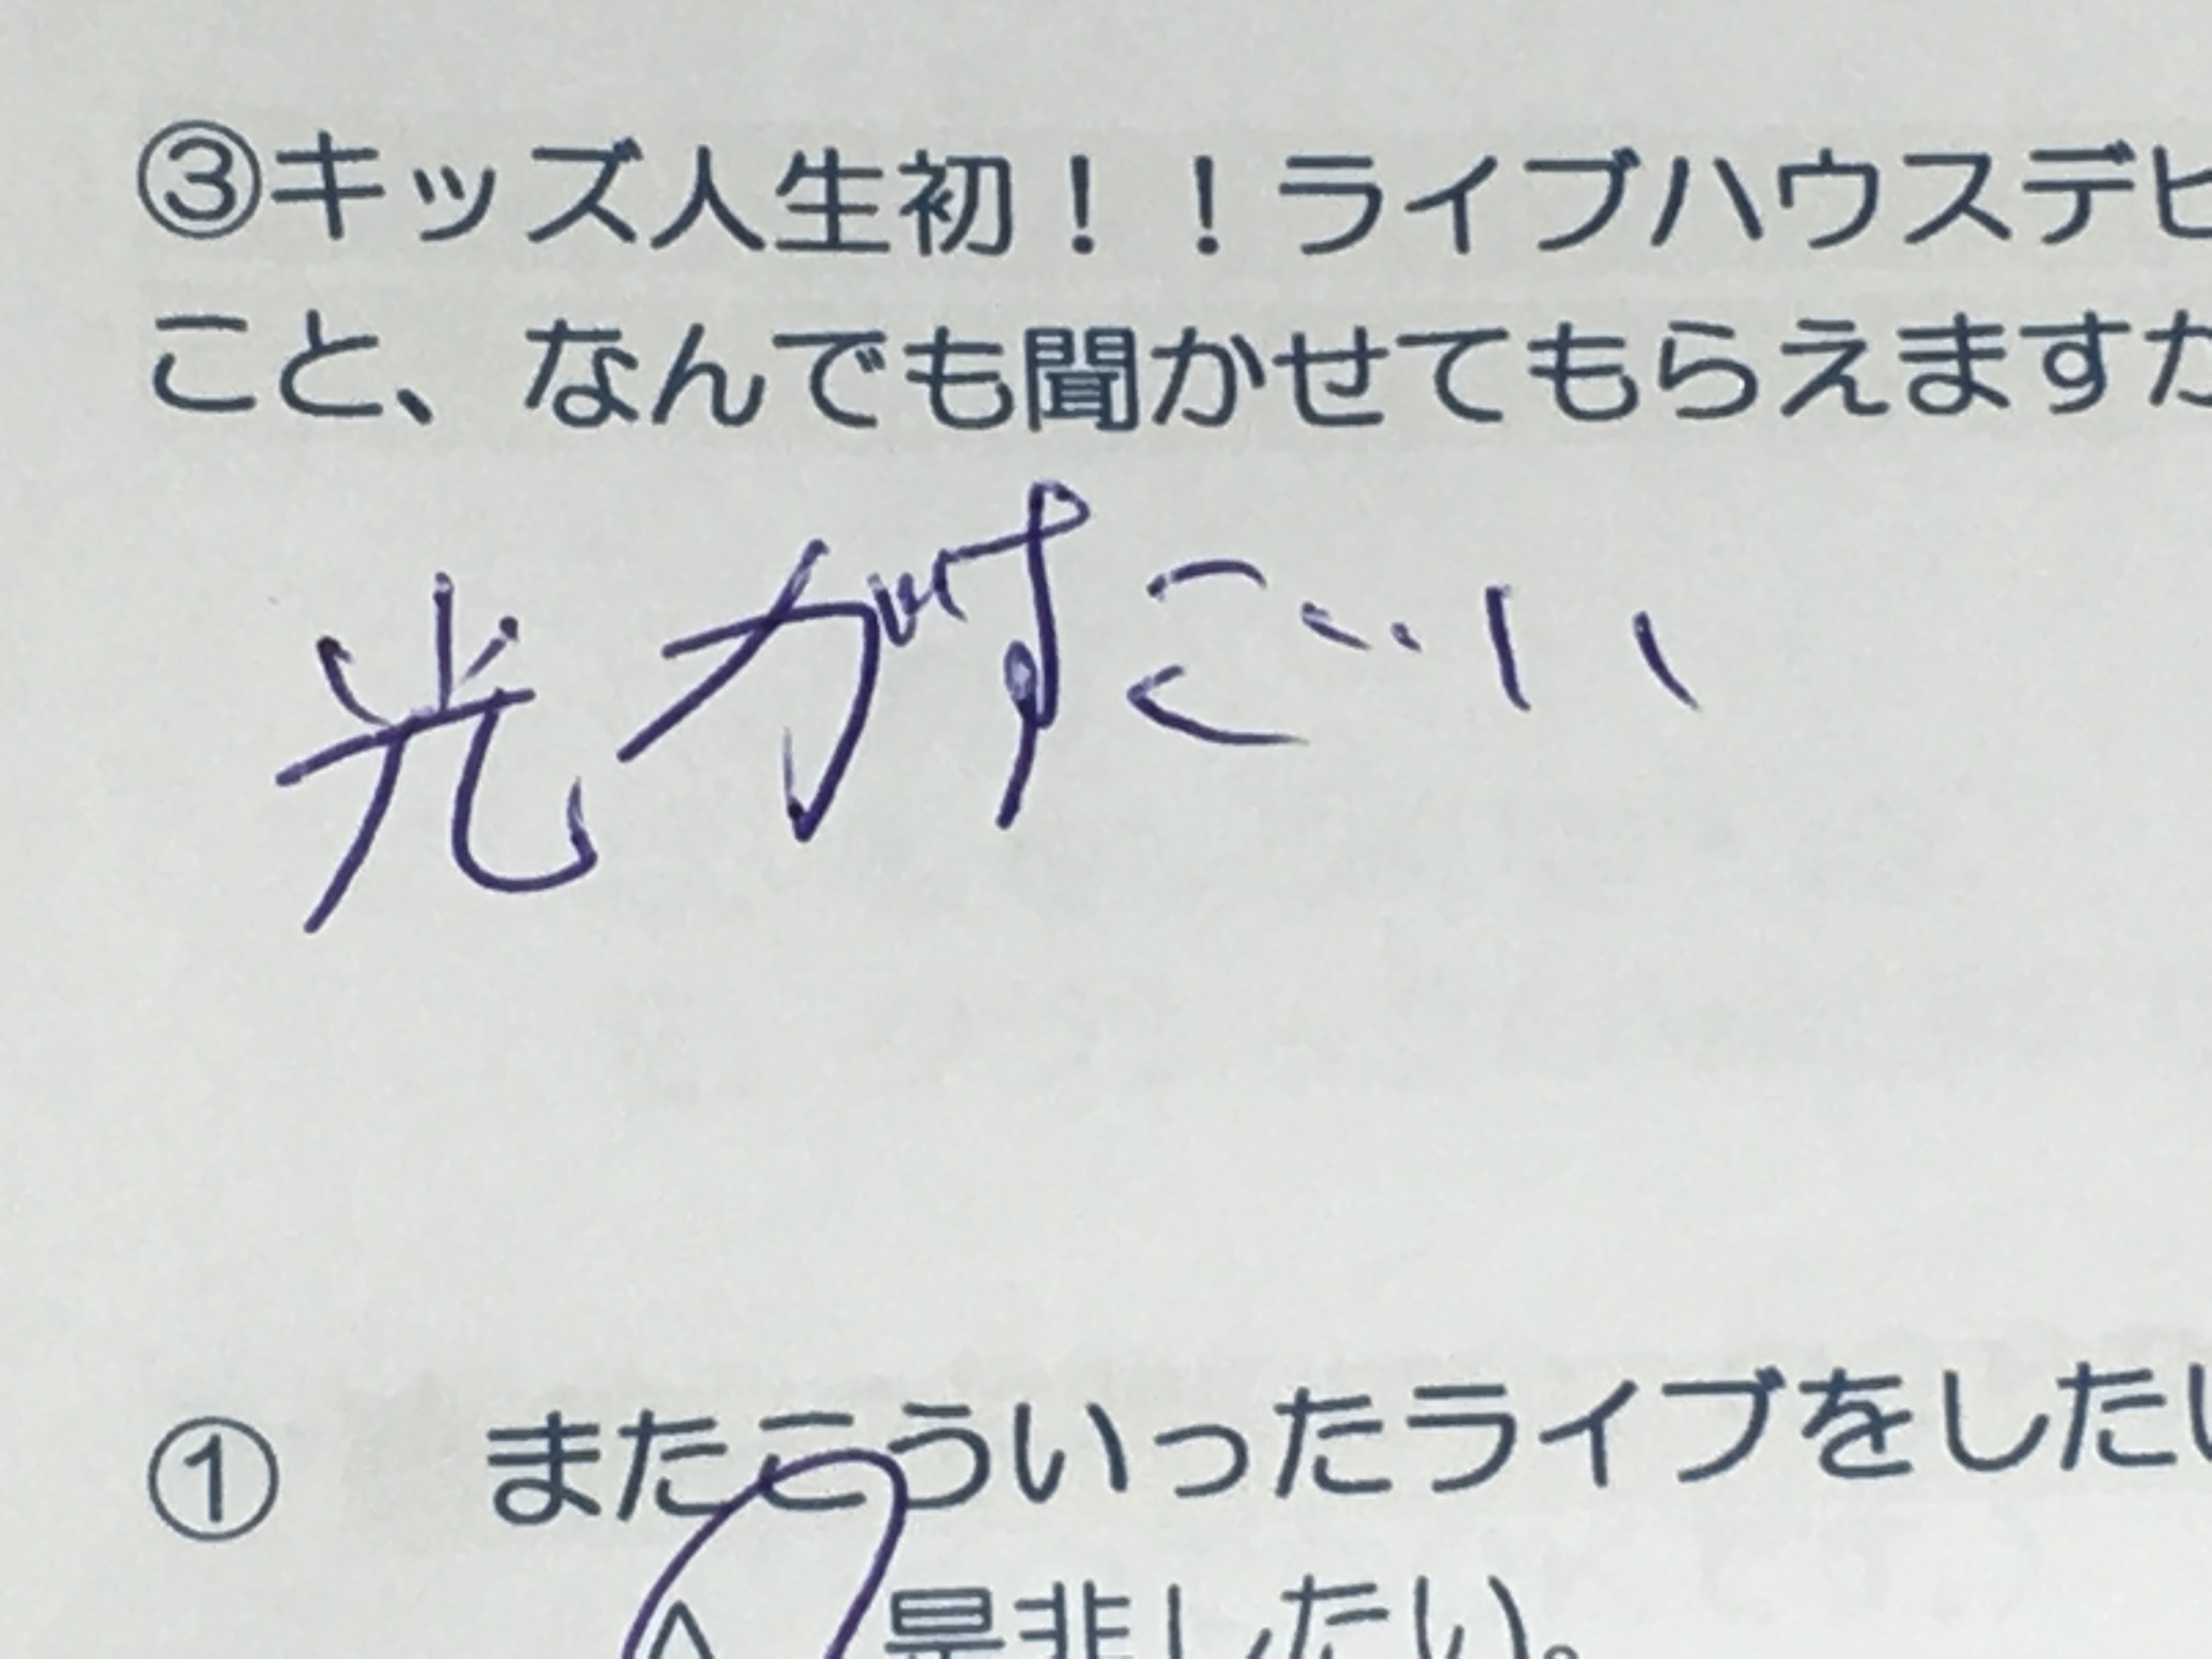 ③キッズ人生初！！ライブハウスデビ
こと、なんでも聞かせてもらえますか
光がすごい
① またこういったライブをしたい
A 是非したい。